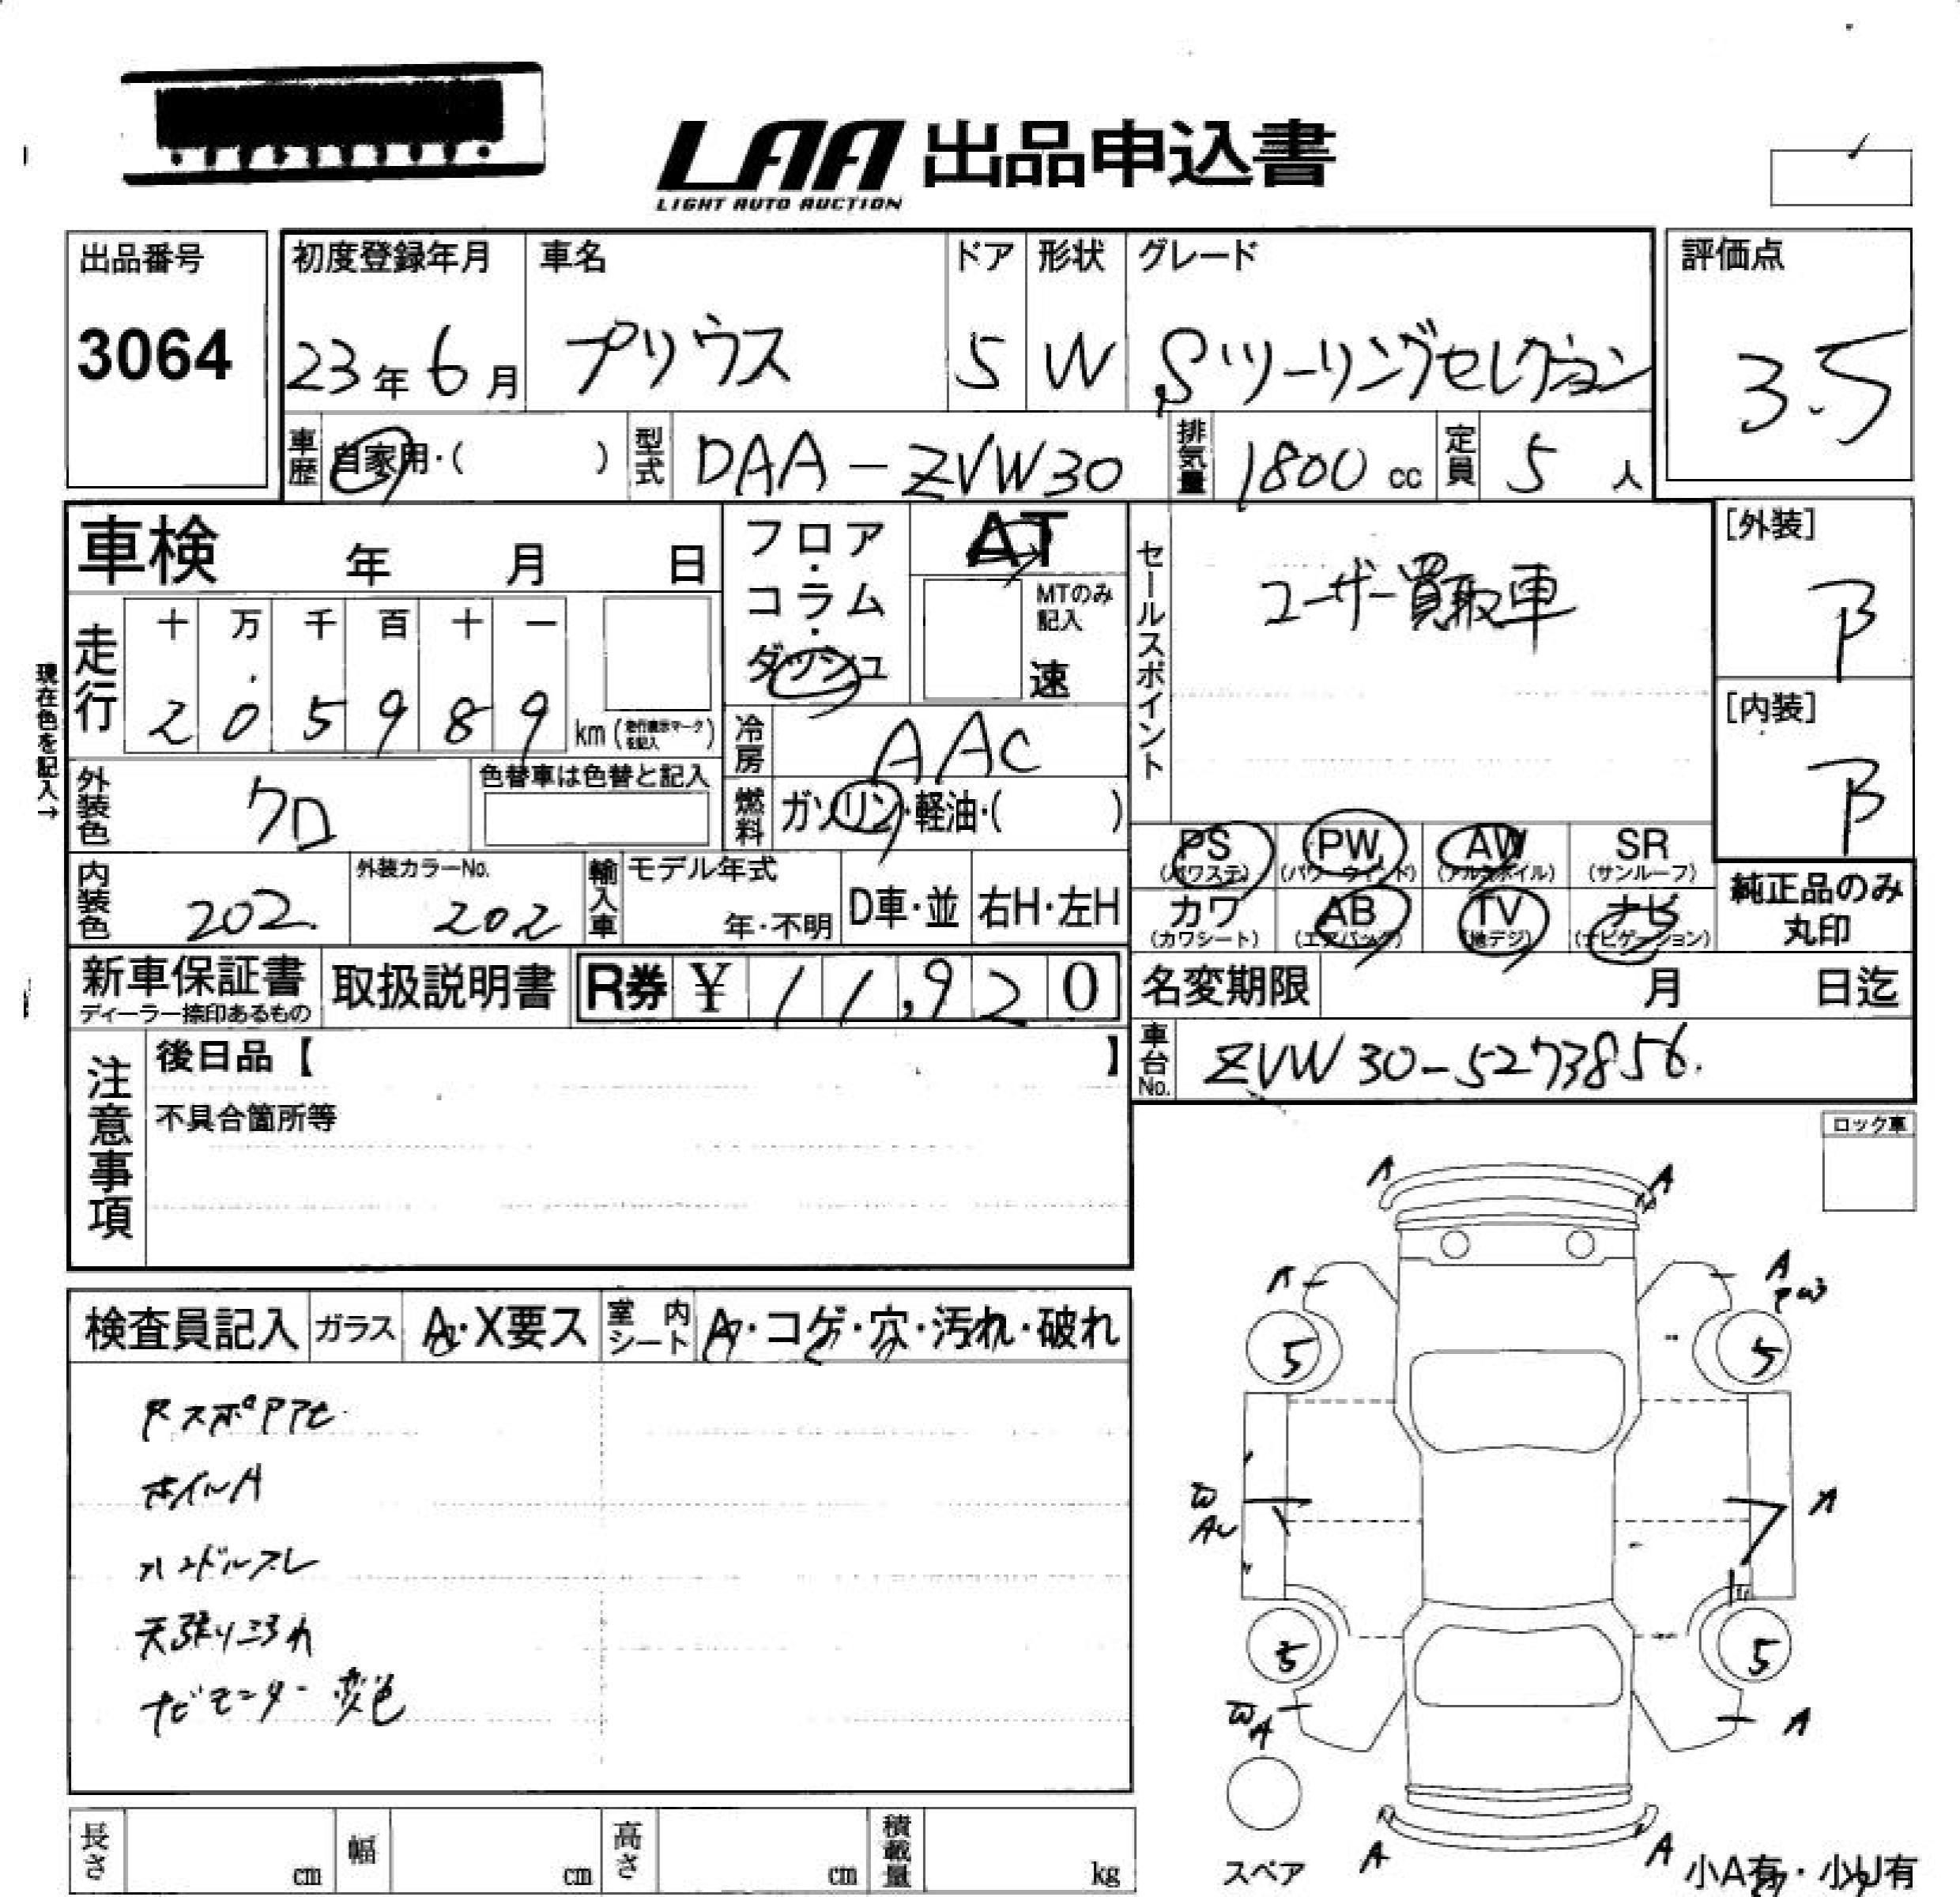 LAA 出品申込書
LIGHT AUTO AUCTION
出品番号
3064
初度登録年月
23年6月
車名
プリウス
ドア
5
形状
W
グレード
Sツーリングセレクション
評価点
3.5
車歴 自家用・( )
型式 DAA-ZVW30
排気量 1800 cc
定員 5 人
車検 年 月 日
走行
十 万 千 百 十 一
2 0 5 9 8 9 km (走行表示マークを記入)
現在色を記入→
フロア・コラム・ダッシュ
AT
MTのみ記入
速
冷房 AAC
燃料 ガソリン・軽油・( )
セールスポイント
ユーザー買取車
[外装]
B
[内装]
B
外装色 クロ
色替車は色替と記入
内装色 202
外装カラーNo.
202
輸入車
モデル年式
年・不明
D車・並
右H・左H
PS (パワステ)
PW (パワーウィンド)
AW (アルミホイル)
SR (サンルーフ)
カワ (カワシート)
AB (エアバッグ)
TV (地デジ)
ナビ (ナビゲーション)
純正品のみ丸印
新車保証書
ディーラー捺印あるもの
取扱説明書
R券 ¥ 11,920
名変期限 月 日迄
車台No. ZVW30-5273856
注意事項
後日品【 】
不具合箇所等
ロック車
検査員記入
ガラス A・X要ス
室内シート A・コゲ・穴・汚れ・破れ
ホイルA
ハンドルスレ
天張りヨゴレ
ナビモニター変色
A
A
A
A
5
5
A
5
5
A
A
A
スペア
小A有・小U有
長さ cm
幅 cm
高さ cm
積載量 kg